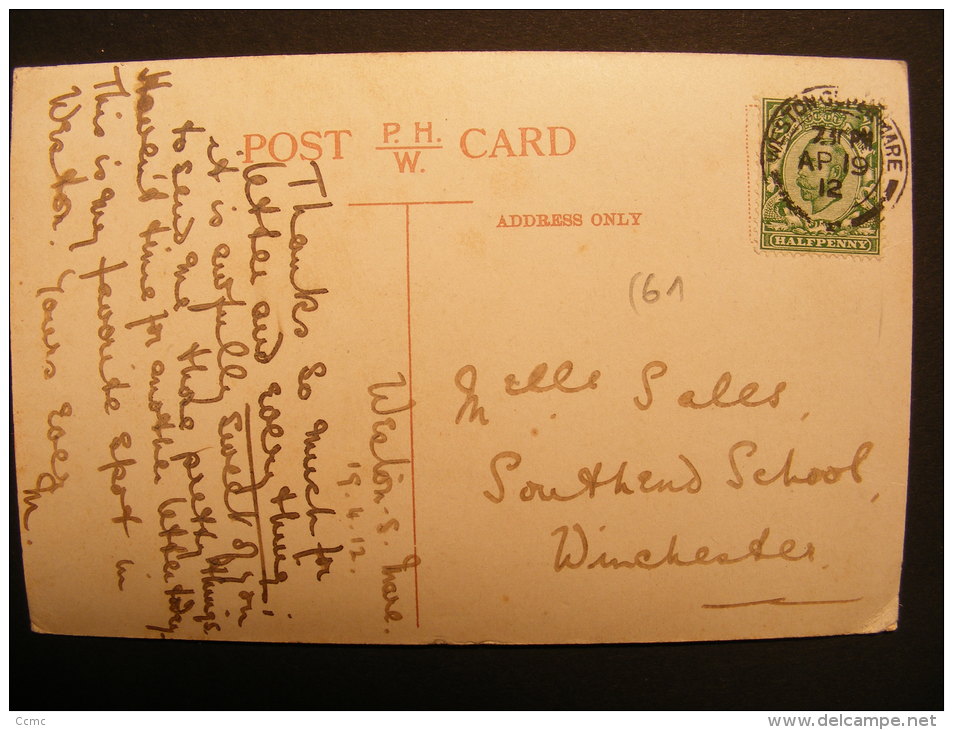 POST P.H. CARD
W.
ADDRESS ONLY
WESTON MARE
AP 19
12
HALFPENNY
(61
Mlle Sales,
Southend School,
Winchester.
Weston-S-Mare.
19.4.12.
Thanks so much for
letter and everything,
it is awfully sweet of you
to send me those pretty things
Haven't time for another letter today.
This is my favorite spot in
Weston. Yours
M.
Ccmc
www.delcampe.net